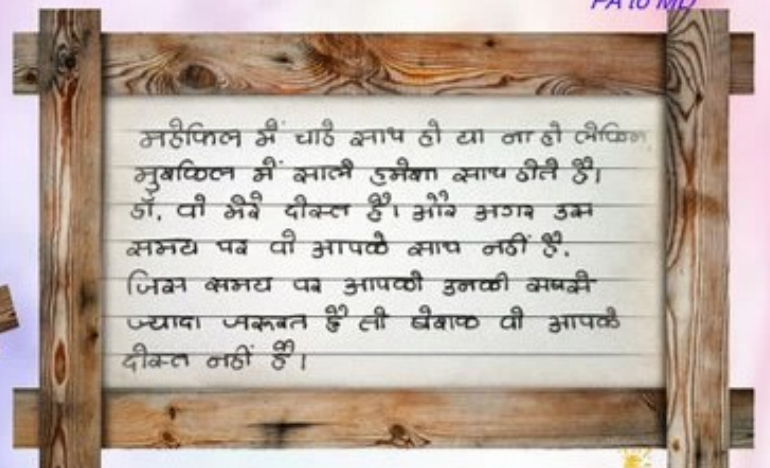 PA to MD
महेफिल में चाहे साथ हो या ना हो लेकिन
मुश्किल में साले हमेशा साथ होते है।
हॉ, वो मेरे दोस्त है। और अगर उस
समय पर वो आपके साथ नहीं है,
जिस समय पर आपको उनकी सबसे
ज्यादा जरूरत है तो बेशक वो आपके
दोस्त नहीं है।